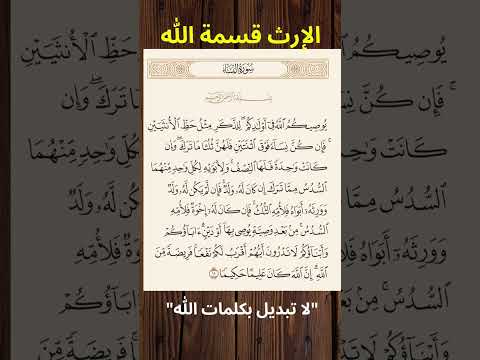 الإرث قسمة الله
سورة النساء
بسم الله الرحمن الرحيم
يُوصِيكُمُ ٱللَّهُ فِىٓ أَوۡلَٰدِكُمۡۖ لِلذَّكَرِ مِثۡلُ حَظِّ ٱلۡأُنثَيَيۡنِۚ
فَإِن كُنَّ نِسَآءٗ فَوۡقَ ٱثۡنَتَيۡنِ فَلَهُنَّ ثُلُثَا مَا تَرَكَۖ وَإِن
كَانَتۡ وَٰحِدَةٗ فَلَهَا ٱلنِّصۡفُۚ وَلِأَبَوَيۡهِ لِكُلِّ وَٰحِدٖ مِّنۡهُمَا
ٱلسُّدُسُ مِمَّا تَرَكَ إِن كَانَ لَهُۥ وَلَدٞۚ فَإِن لَّمۡ يَكُن لَّهُۥ وَلَدٞ
وَوَرِثَهُۥٓ أَبَوَاهُ فَلِأُمِّهِ ٱلثُّلُثُۚ فَإِن كَانَ لَهُۥٓ إِخۡوَةٞ فَلِأُمِّهِ
ٱلسُّدُسُۚ مِنۢ بَعۡدِ وَصِيَّةٖ يُوصِى بِهَآ أَوۡ دَيۡنٍۗ ءَابَآؤُكُمۡ
وَأَبۡنَآؤُكُمۡ لَا تَدۡرُونَ أَيُّهُمۡ أَقۡرَبُ لَكُمۡ نَفۡعٗاۚ فَرِيضَةٗ مِّنَ
ٱللَّهِۗ إِنَّ ٱللَّهَ كَانَ عَلِيمًا حَكِيمٗا ١١
"لا تبديل بكلمات الله"